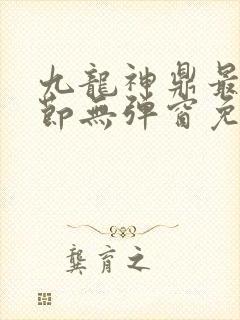 九龍神鼎最
節無彈窗免
龔育之